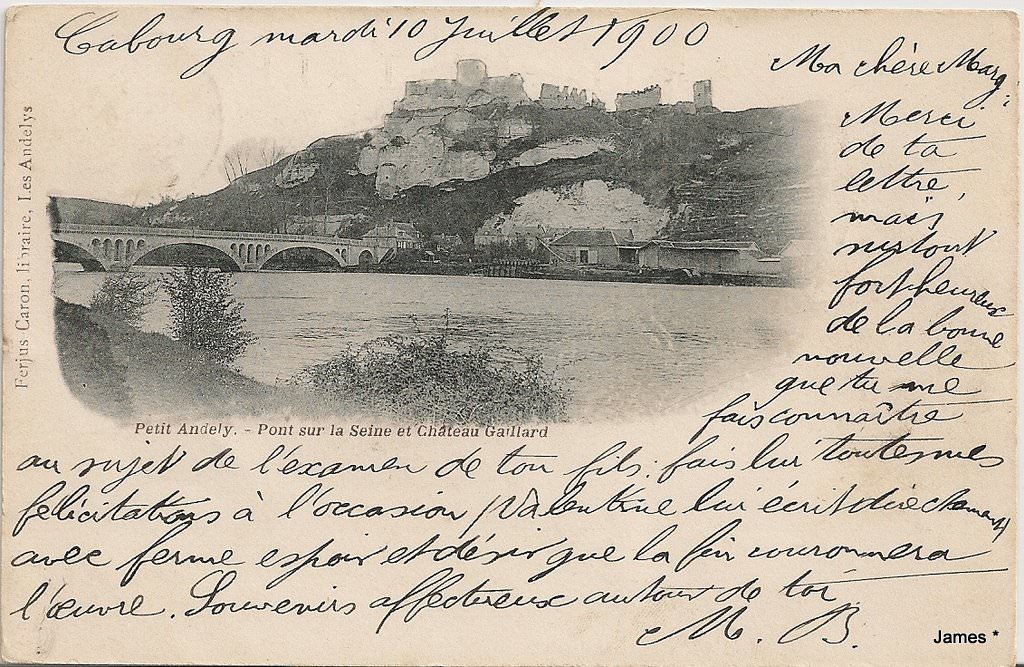 Cabourg mardi 10 Juillet 1900
Ma chère Marg:
Merci
de ta
lettre,
mais
surtout
fort heureux
de la bonne
nouvelle
que tu me
fais connaître
au sujet de l'examen de ton fils: fais lui toutes mes
félicitations à l'occasion, Valentine lui écrit directement
avec ferme espoir et désir que la fin couronnera
l'œuvre. Souvenirs affectueux autour de toi
M. B.
Ferjus Caron, libraire, Les Andelys
Petit Andely. - Pont sur la Seine et Château Gaillard
James *